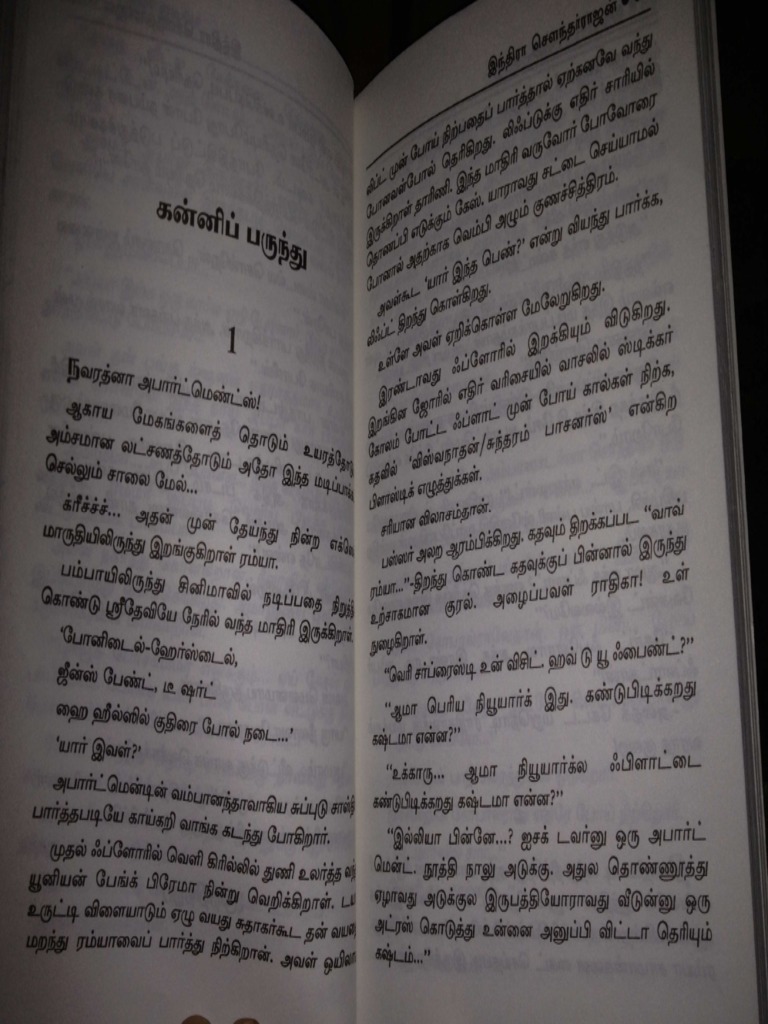 கன்னிப் பருந்து
1
நவரத்னா அபார்ட்மெண்ட்ஸ்!
ஆகாய மேகங்களைத் தொடும் உயரத்தோடு
அம்சமான லட்சணத்தோடும் அதோ இந்த மடிப்பாக்
செல்லும் சாலை மேல்...
க்ரீச்ச்ச்... அதன் முன் தேய்ந்து நின்ற
மாருதியிலிருந்து இறங்குகிறாள் ரம்யா.
பம்பாயிலிருந்து சினிமாவில் நடிப்பதை நிறுத்தி
கொண்டு ஸ்ரீதேவியே நேரில் வந்த மாதிரி இருக்கிறாள்
'போனிடைல்-ஹேர்ஸ்டைல்,
ஜீன்ஸ் பேண்ட், டீ ஷர்ட்
ஹை ஹீல்ஸில் குதிரை போல் நடை...'
'யார் இவள்?'
அபார்ட்மென்டின் வம்பானந்தாவாகிய சுப்புடு சாஸ்தி
பார்த்தபடியே காய்கறி வாங்க கடந்து போகிறார்.
முதல் ஃப்ளோரில் வெளி கிரில்லில் துணி உலர்த்த வந்
யூனியன் பேங்க் பிரேமா நின்று வெறிக்கிறாள். டய
உருட்டி விளையாடும் ஏழு வயது சுதாகர்கூட தன் வயதை
மறந்து ரம்யாவைப் பார்த்து நிற்கிறான். அவள் ஒயிலா
இந்திரா சௌந்தர்ராஜன்
லிப்ட் முன் போய் நிற்பதைப் பார்த்தால் ஏற்கனவே வந்து
போனவள்போல் தெரிகிறது. லிஃப்டுக்கு எதிர் சாரியில்
இருக்கிறாள் தாரிணி. இந்த மாதிரி வருவோர் போவோரை
தொணப்பி எடுக்கும் கேஸ். யாராவது சட்டை செய்யாமல்
போனால் அதற்காக வெம்பி அழும் குணச்சித்திரம்.
அவள்கூட 'யார் இந்த பெண்?' என்று வியந்து பார்க்க,
லிஃப்ட் திறந்து கொள்கிறது.
உள்ளே அவள் ஏறிக்கொள்ள மேலேறுகிறது.
இரண்டாவது ஃப்ளோரில் இறக்கியும் விடுகிறது.
இறங்கின ஜோரில் எதிர் வரிசையில் வாசலில் ஸ்டிக்கர்
கோலம் போட்ட ஃப்ளாட் முன் போய் கால்கள் நிற்க,
கதவில் 'விஸ்வநாதன்/சுந்தரம் பாசனர்ஸ்' என்கிற
பிளாஸ்டிக் எழுத்துக்கள்.
சரியான விலாசம்தான்.
பஸ்ஸர் அலற ஆரம்பிக்கிறது. கதவும் திறக்கப்பட "வாவ்
ரம்யா..."-திறந்து கொண்ட கதவுக்குப் பின்னால் இருந்து
உற்சாகமான குரல். அழைப்பவள் ராதிகா! உள்
நுழைகிறாள்.
"வெரி சர்ப்ரைஸ்டி உன் விசிட். ஹவ் டு யூ ஃபைண்ட்?"
"ஆமா பெரிய நியூயார்க் இது. கண்டுபிடிக்கறது
கஷ்டமா என்ன?"
"உக்காரு... ஆமா நியூயார்க்ல ஃபிளாட்டை
கண்டுபிடிக்கறது கஷ்டமா என்ன?"
"இல்லியா பின்னே...? ஐசக் டவர்னு ஒரு அபார்ட்
மென்ட். நூத்தி நாலு அடுக்கு. அதுல தொண்ணூத்து
ஏழாவது அடுக்குல இருபத்தியோராவது வீடுன்னு ஒரு
அட்ரஸ் கொடுத்து உன்னை அனுப்பி விட்டா தெரியும்
கஷ்டம்..."